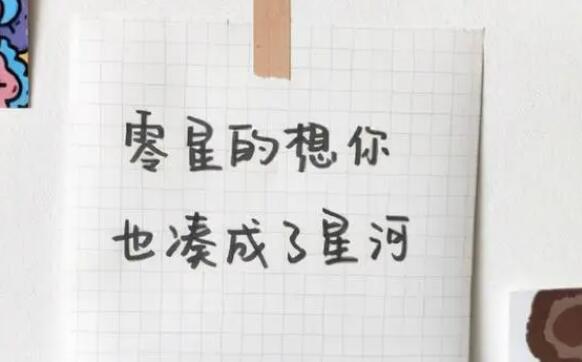 零星的想你
也凑成了星河